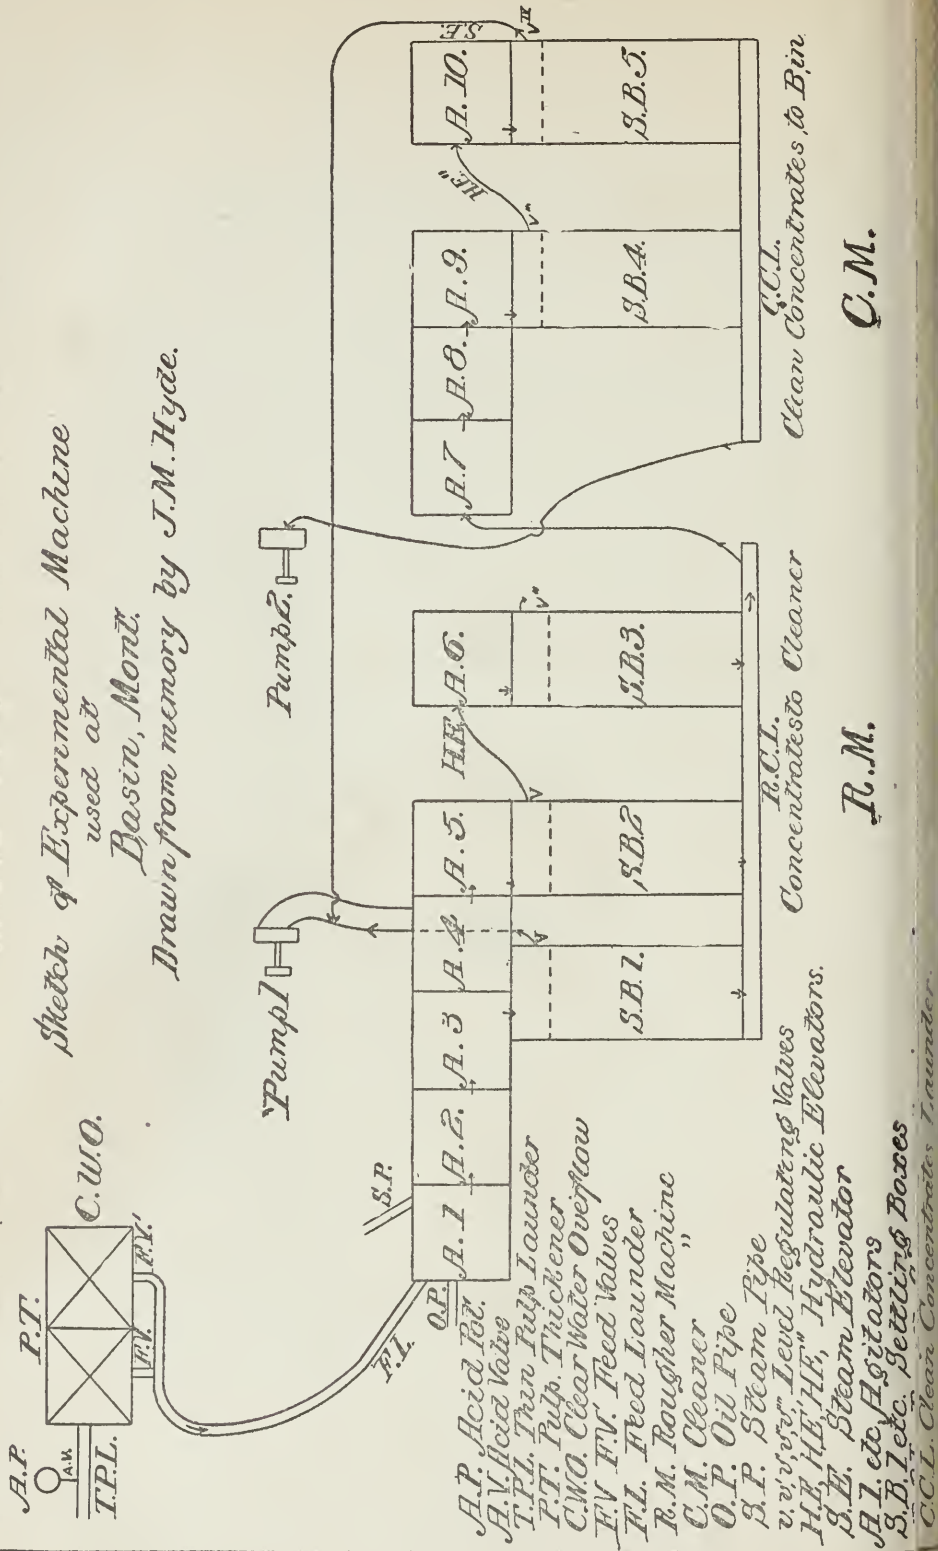 Sketch of Experimental Machine
used at
Basin, Mont.
Drawn from memory by J.M. Hyde.
A.P.
A.V.
T.P.L.
P.T.
C.W.O.
F.V.
F.V.'
F.L.
O.P.
S.P.
Pump 1
Pump 2.
A.1
A.2.
A.3
A.4
A.5.
H.E.
A.6.
A.7
A.8.
A.9.
HE"
A.10.
S.E.
V
V
V"
V"
S.B.1.
S.B.2
S.B.3.
S.B.4.
S.B.5.
R.C.L.
Concentrates to Cleaner
C.C.L.
Clean Concentrates to Bin
R.M.
C.M.
A.P. Acid Pot.
A.V. Acid Valve
T.P.L. Thin Pulp Launder
P.T. Pulp Thickener
C.W.O. Clear Water Overflow
F.V. F.V.' Feed Valves
F.L. Feed Launder
R.M. Rougher Machine
C.M. Cleaner "
O.P. Oil Pipe
S.P. Steam Pipe
v, v', v", v''' Level Regulating Valves
H.E, HE,' HE," Hydraulic Elevators.
S.E. Steam Elevator
A.1. etc. Agitators
S.B.1 etc. Settling Boxes
C.C.L. Clean Concentrates Launder.